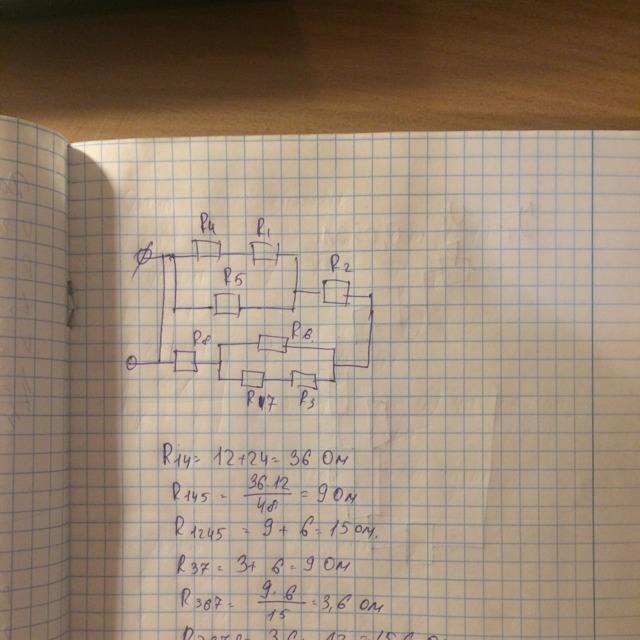 R4 R1
R5 R2
R8 R6
R7 R3
R14 = 12+24 = 36 Ом
R145 = 36·12/48 = 9 Ом
R1245 = 9 + 6 = 15 Ом.
R37 = 3 + 6 = 9 Ом
R367 = 9·6/15 = 3,6 Ом